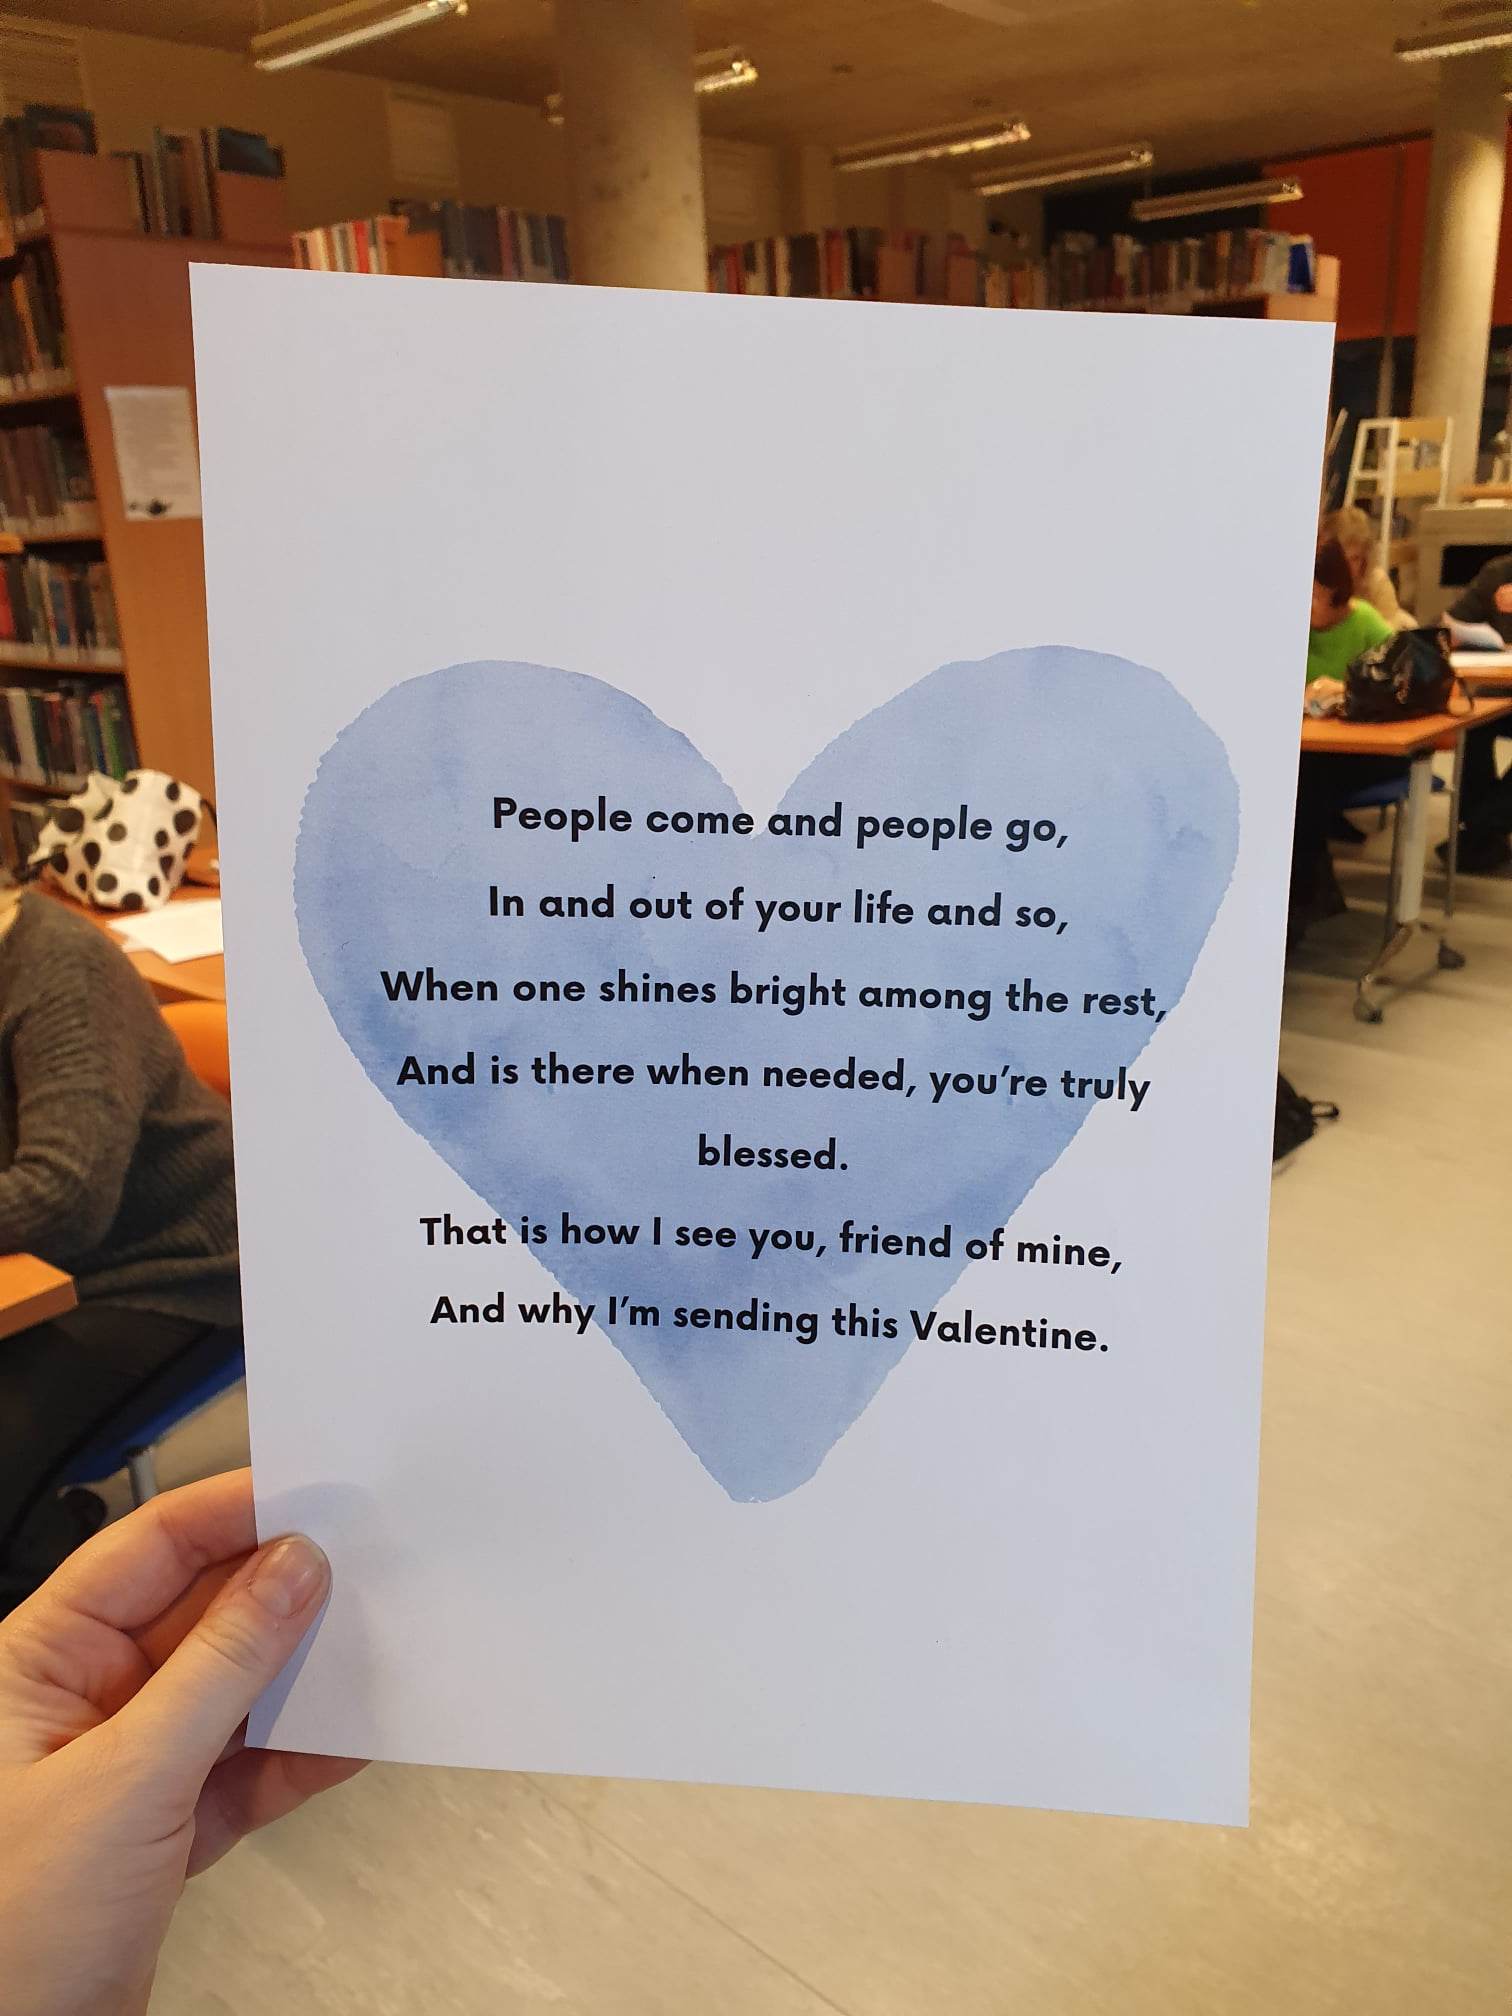 People come and people go,
In and out of your life and so,
When one shines bright among the rest,
And is there when needed, you're truly
blessed.
That is how I see you, friend of mine,
And why I'm sending this Valentine.